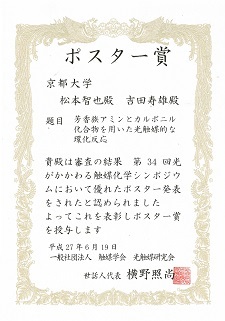 ポスター賞
京都大学
松本智也殿 吉田寿雄殿
題目 芳香族アミンとカルボニル
化合物を用いた光触媒的な
環化反応
貴殿は審査の結果 第34回光
がかかわる触媒化学シンポジウ
ムにおいて優れたポスター発表
をされたと認められました
よってこれを表彰しポスター賞
を授与します
平成27年6月19日
一般社団法人 触媒学会 光触媒研究会
世話人代表 横野照尚